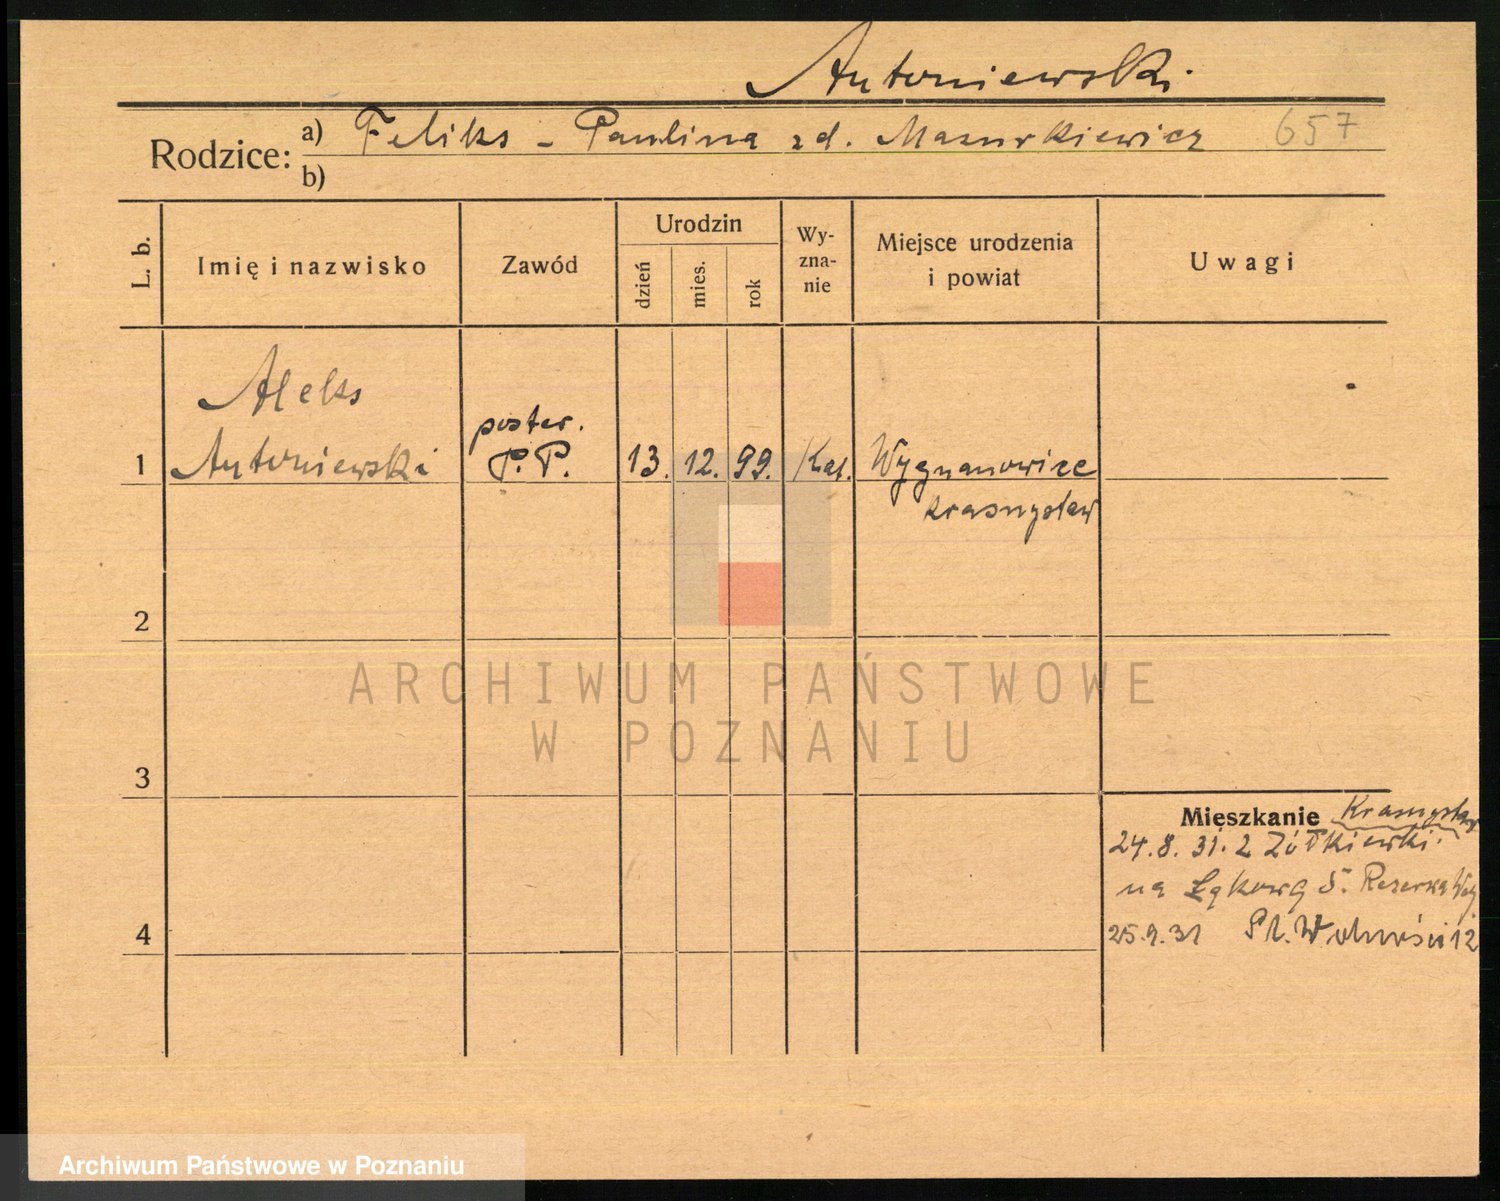 Antoniewski
Rodzice: a) Feliks - Paulina zd. Mazurkiewicz 657
b)
L. b.
Imię i nazwisko
Zawód
Urodzin
dzień
mies.
rok
Wy-
zna-
nie
Miejsce urodzenia
i powiat
Uwagi
Aleks
Antoniewski
poster.
P.P.
1
13. 12. 99.
Kat.
Wygnanowice
Krasnystaw
2
3
4
Mieszkanie Krasnystaw
24.8.31. z Żółkiewki.
na Łąkową 5.
25.9.31 Pl. Wolności 12
ARCHIWUM PAŃSTWOWE
W POZNANIU
Archiwum Państwowe w Poznaniu